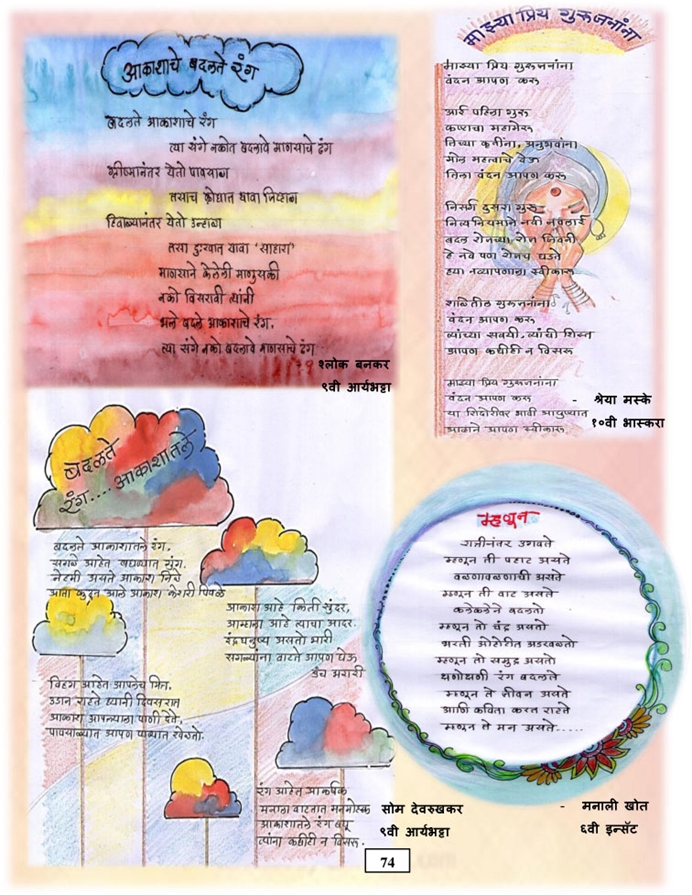 आकाशाचे बदलते रंग
बदलते आकाशाचे रंग
त्या संगे नकोत बदलावे माणसाचे ढंग
ग्रीष्मानंतर येतो पावसाळा
तसाच क्रोधात यावा जिव्हाळा
हिवाळ्यानंतर येतो उन्हाळा
तसा दुःखात यावा 'सहारा'
माणसाने केलेली माणुसकी
नको विसरावी त्यांनी
भले बदले आकाशाचे रंग.
त्या संगे नको बदलावे माणसाचे ढंग
श्लोक बनकर
९वी आर्यभट्टा
माझ्या प्रिय गुरुजनांना
माझ्या प्रिय गुरुजनांना
वंदन आपण करू
आई पहिला गुरू
कष्टाचा महामेरू
तिच्या कृतींना, अनुभवांना
मोल महत्वाचे देऊ
तिला वंदन आपण करू
निसर्ग दुसरा गुरू
नित्यनियमाने नवी नवलाई
बदल रोजच्या रोज जिवनी
हे नवे पण रोजच घडते
ह्या नव्यापणाला स्वीकारू
शाळेतील गुरुजनांना
वंदन आपण करू
त्यांच्या सवयी, त्यांची शिस्त
आपण कधीही न विसरू
माझ्या प्रिय गुरुजनांना
वंदन आपण करू
या शिदोरीवर भावी आयुष्यात
आव्हाने आपण स्वीकारू.
- श्रेया मस्के
१०वी भास्करा
बदलते
रंग.... आकाशातले
बदलते आकाशातले रंग.
सगळे आहेत बघण्यात गुंग.
नेहमी असते आकाश निळे
आता कुठून आले आकाश केशरी पिवळे
आकाश आहे किती सुंदर,
आम्हाला आहे त्याचा आदर.
इंद्रधनुष्य असतो भारी
सगळ्यांना वाटते आपण घेऊ
उंच भरारी
विहंग आहेत आपलेच मित्र.
उडत राहते ध्यानी दिवसरात्र
आकाश आपल्याला पाणी देते.
पावसाळ्यात आपण पाण्यात खेळतो.
रंग आहेत आकर्षक
मनाला वाटतात मनमोहक
आकाशातले रंग बघू
त्यांना कधीही न विसरू.
सोम देवरुखकर
९वी आर्यभट्टा
म्हणून
रात्रीनंतर उगवते
म्हणून ती पहाट असते
वळणावळणाची असते
म्हणून ती वाट असते
कलेकलेने बदलतो
म्हणून तो चंद्र असतो
भरती ओहोटीत अडखळतो
म्हणून तो समुद्र असतो
क्षणोक्षणी रंग बदलते
म्हणून ते जीवन असते
आणि कविता करत राहते
म्हणून ते मन असते.....
- मनाली खोत
६वी इन्सॅट
74